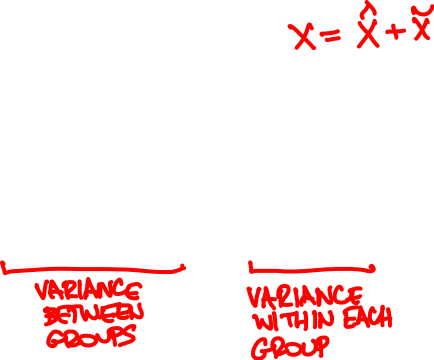 X = X̂ + X̆
VARIANCE
BETWEEN
GROUPS
VARIANCE
WITHIN EACH
GROUP